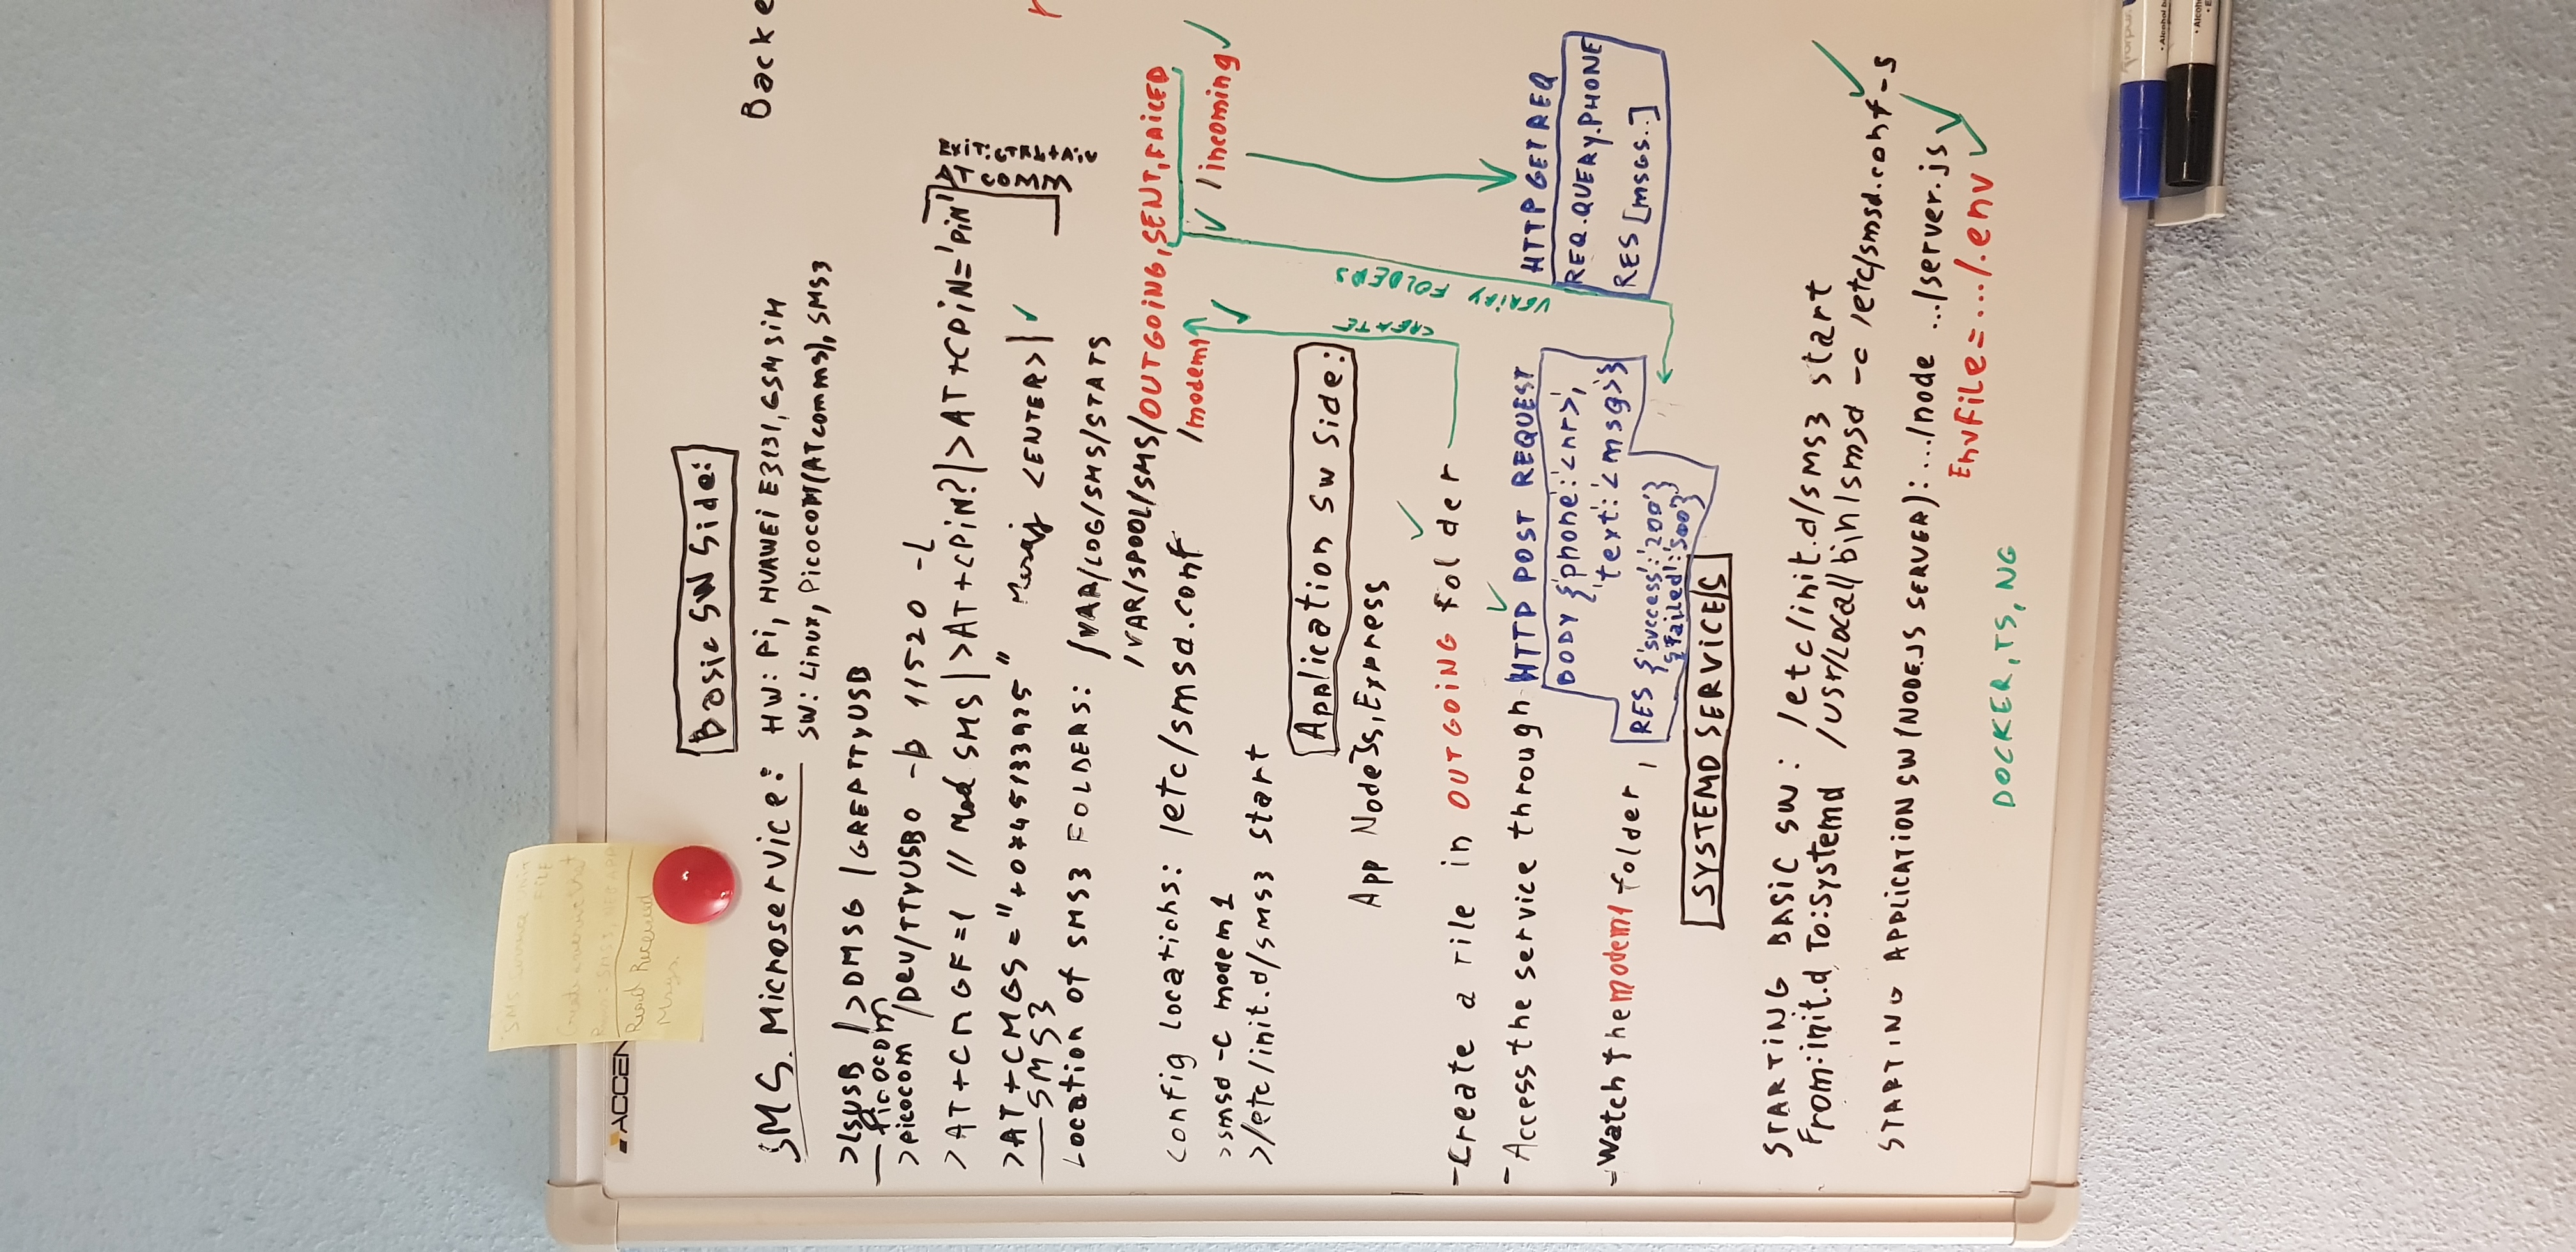 SMS Service UNIT
FILE
Create a service that
Runs: SMS3, WEB APP
Read Received
Msgs.
ACCEN
Basic SW Side:
SMS. Microservice: HW: Pi, HUAWEi E3131, GSM SiM
SW: Linux, Picocom(ATcomms), SMS3
Backe
>LSUSB | >DMSG | GREP TTYUSB
Picocom
>picocom /Dev/TTYUSB0 -b 11520 -L
>AT+CMGF=1 // Mod SMS | >AT+CPiN? | >AT+CPiN='PiN'
AT COMM
>AT+CMGS="+0745133925" Mesaj <ENTER> |
SMS3
Location of SMS3 FOLDERS: /VAR/LOG/SMS/STATS
/VAR/SPOOL/SMS/OUTGOiNG, SENT, FAiLED
/modem1 /incoming
Config locations: /etc/smsd.conf
>smsd -C modem1
>/etc/init.d/SMS3 start
Application SW Side:
App NodeJs, Express
CREATE
VERiFY FOLDERS
-Create a file in OUTGOiNG folder
-Access the service through HTTP POST REQUEST
BODY {'phone':'<nr>',
'text':'<msg>'}
HTTP GET REQ
REQ.QUERY.PHONE
RES [MSGS..]
-Watch the modem1 folder,
RES {'success':'200'}
{'failed':'500'}
SYSTEMD SERVICE/S
STARTiNG BASiC SW: /etc/init.d/sms3 start
From:init.d To:Systemd /usr/Local/bin/smsd -c /etc/smsd.conf -s
STARTING APPLICATION SW (NODEJS SERVER): .../node .../server.js
EnvFile=.../.env
DOCKER, TS, NG